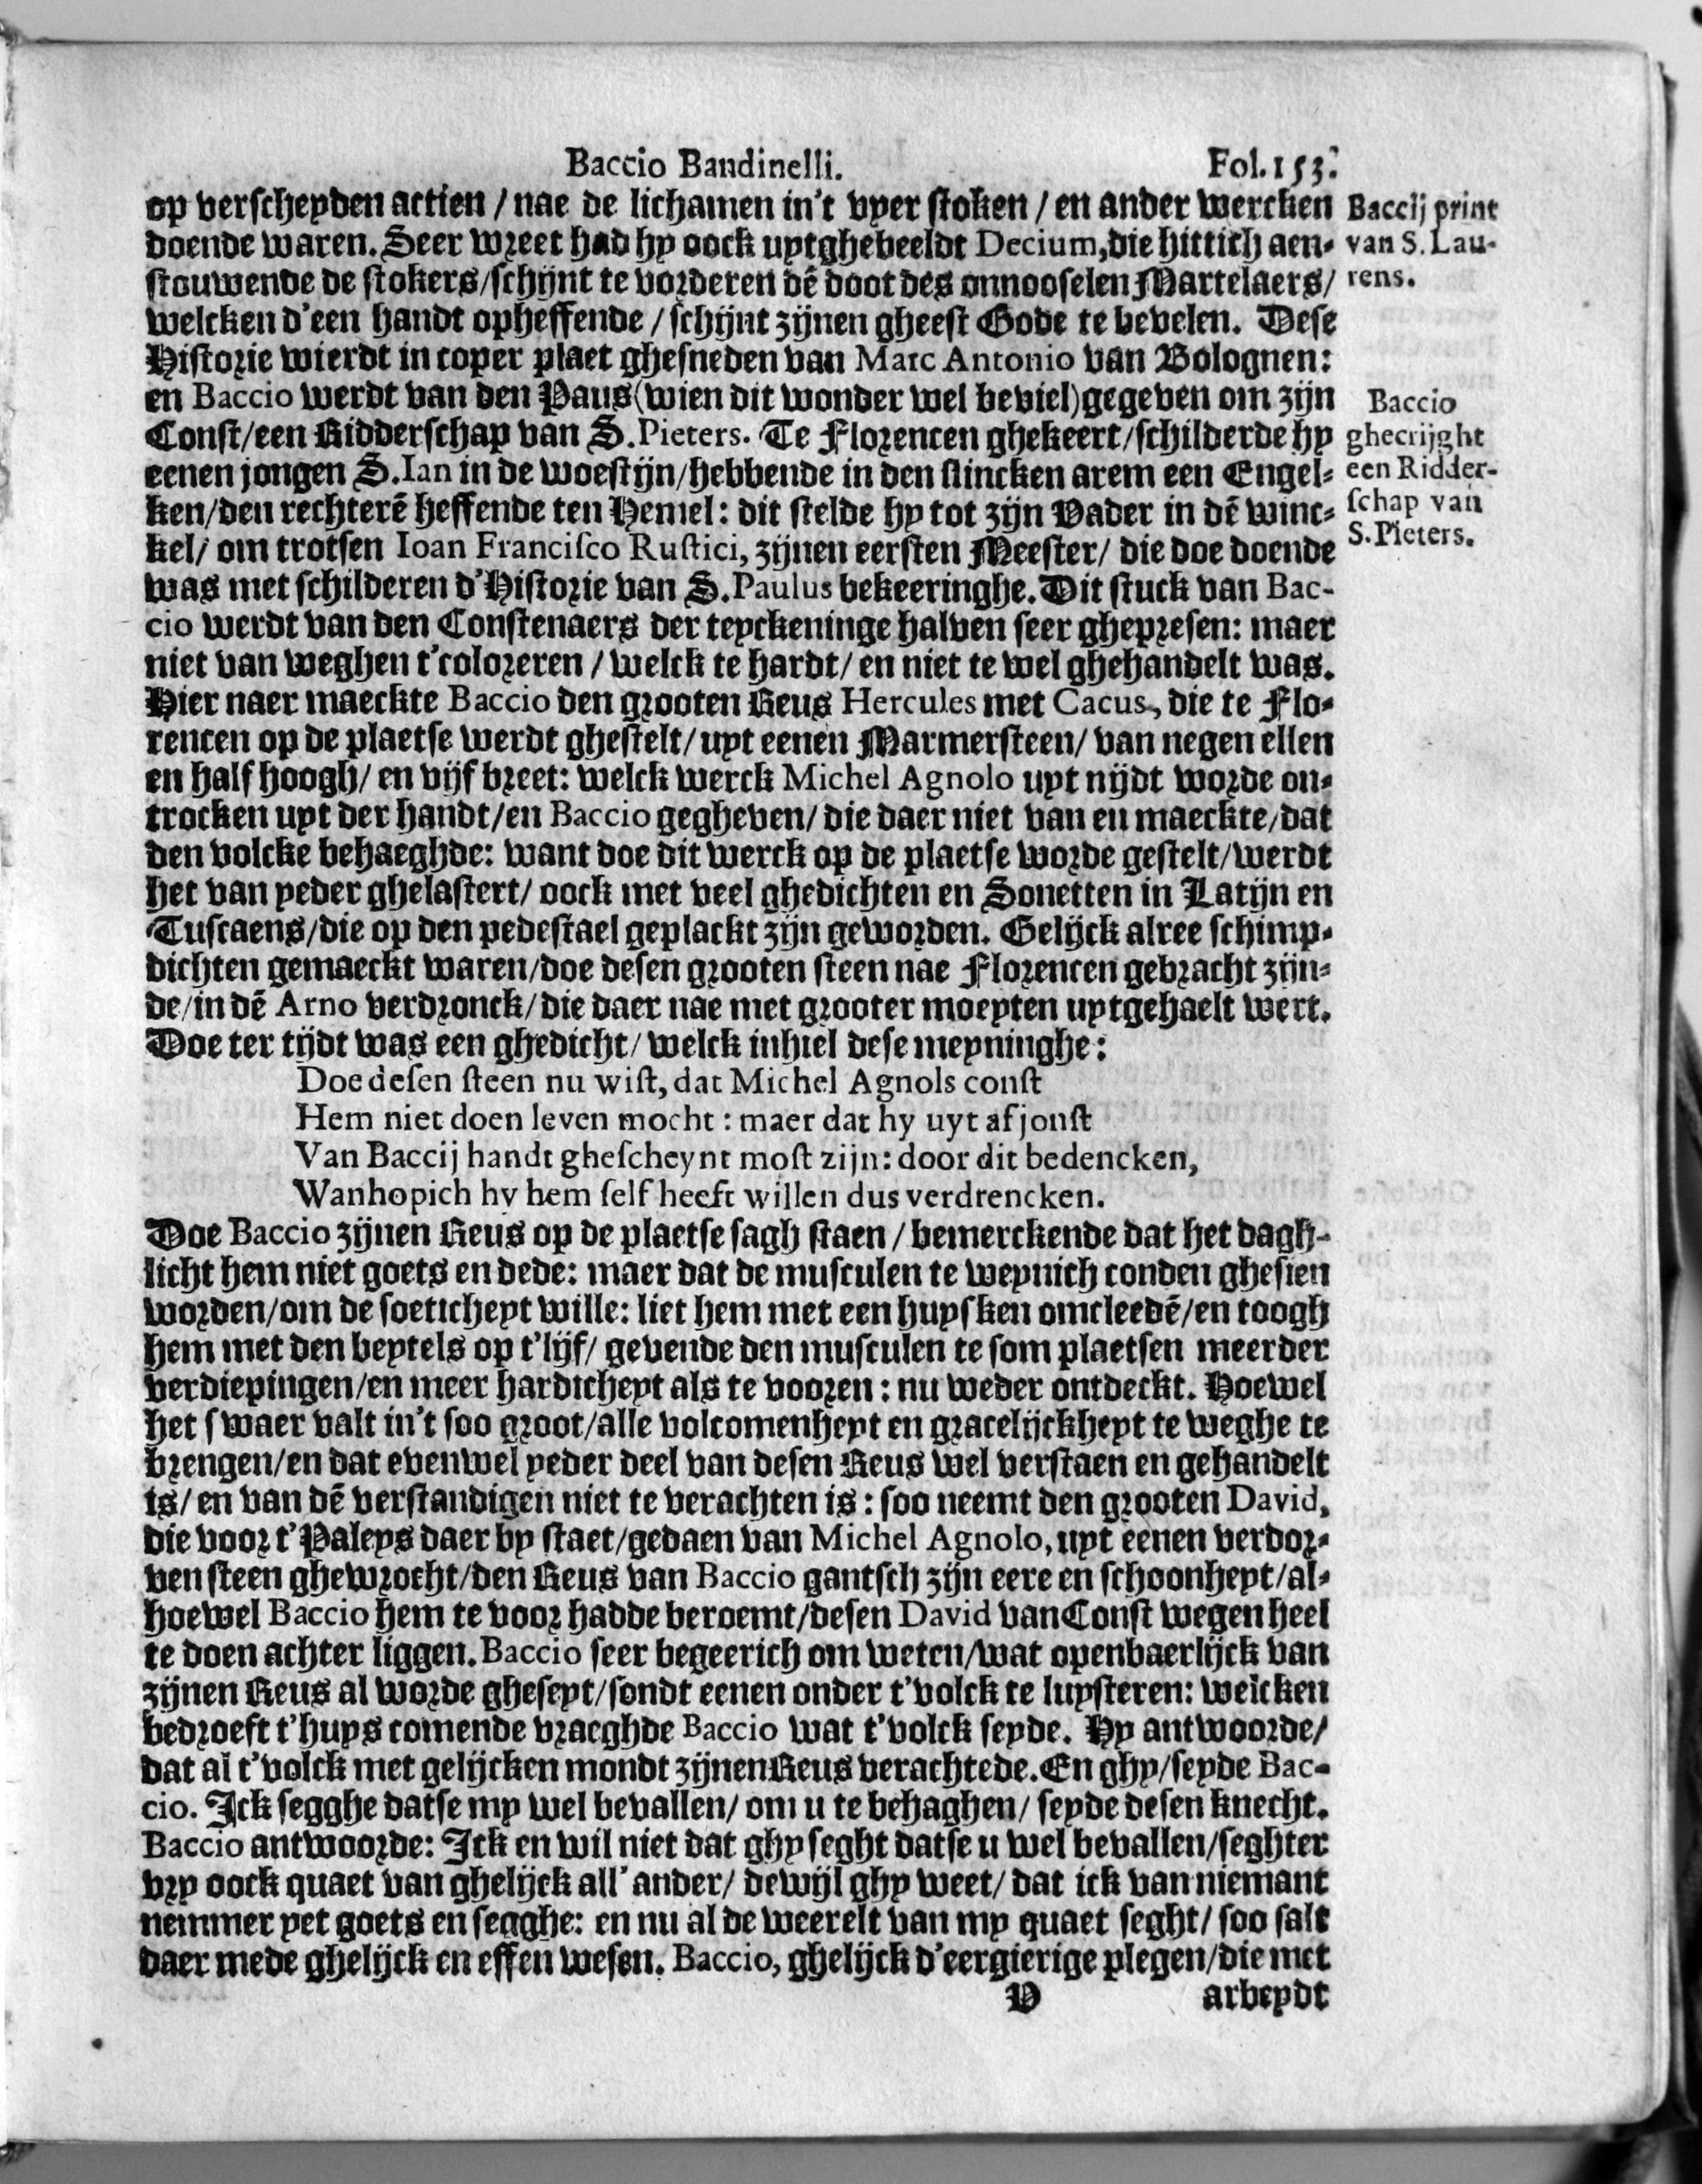 Baccio Bandinelli. Fol. 153.
op verscheyden actien / nae de lichamen in't vyer stoken / en ander wercken
doende waren. Seer wreet had hy oock uytghebeeldt Decium, die hittich aen-
stouwende de stokers / schijnt te vorderen dē doot des onnooselen Martelaers /
welcken d'een handt opheffende / schijnt zijnen gheest Gode te bevelen. Dese
Historie wierdt in coper plaet ghesneden van Marc Antonio van Bolognen:
en Baccio werdt van den Paus (wien dit wonder wel beviel) gegeven om zijn
Const / een Ridderschap van S. Pieters. Te Florencen ghekeert / schilderde hy
eenen jongen S. Ian in de woestijn / hebbende in den slincken arem een Engel-
ken / den rechterē heffende ten Hemel: dit stelde hy tot zijn Vader in dē winc-
kel / om trotsen Ioan Francisco Rustici, zijnen eersten Meester / die doe doende
was met schilderen d'Historie van S. Paulus bekeeringhe. Dit stuck van Bac-
cio werdt van den Constenaers der teyckeninge halven seer ghepresen: maer
niet van weghen t'coloreren / welck te hardt / en niet te wel ghehandelt was.
Hier naer maeckte Baccio den grooten Reus Hercules met Cacus, die te Flo-
rencen op de plaetse werdt ghestelt / uyt eenen Marmersteen / van negen ellen
en half hoogh / en vijf breet: welck werck Michel Agnolo uyt nijdt worde on-
trocken uyt der handt / en Baccio gegheven / die daer niet van en maeckte / dat
den volcke behaeghde: want doe dit werck op de plaetse worde gestelt / werdt
het van yeder ghelastert / oock met veel ghedichten en Sonetten in Latijn en
Tuscaens / die op den pedestael geplackt zijn geworden. Gelijck alree schimp-
dichten gemaeckt waren / doe desen grooten steen nae Florencen gebracht zijn-
de / in dē Arno verdronck / die daer nae met grooter moeyten uytgehaelt wert.
Doe ter tijdt was een ghedicht / welck inhiel dese meyninghe:
Doe desen steen nu wist, dat Michel Agnols const
Hem niet doen leven mocht: maer dat hy uyt afjonst
Van Baccij handt ghescheynt most zijn: door dit bedencken,
Wanhopich hy hem self heeft willen dus verdrencken.
Doe Baccio zijnen Reus op de plaetse sagh staen / bemerckende dat het dagh-
licht hem niet goets en dede: maer dat de musculen te weynich conden ghesien
worden / om de soeticheyt wille: liet hem met een huysken omcleedē / en toogh
hem met den beytels op t'lijf / gevende den musculen te som plaetsen meerder
verdiepingen / en meer hardicheyt als te vooren: nu weder ontdeckt. Hoewel
het swaer valt in't soo groot / alle volcomenheyt en gracelijckheyt te weghe te
brengen / en dat evenwel yeder deel van desen Reus wel verstaen en gehandelt
is / en van dē verstandigen niet te verachten is: soo neemt den grooten David,
die voor t'Paleys daer by staet / gedaen van Michel Agnolo, uyt eenen verdor-
ven steen ghewrocht / den Reus van Baccio gantsch zijn eere en schoonheyt / al-
hoewel Baccio hem te voor hadde beroemt / desen David van Const wegen heel
te doen achter liggen. Baccio seer begeerich om weten / wat openbaerlijck van
zijnen Reus al worde gheseyt / sondt eenen onder t'volck te luysteren: welcken
bedroeft t'huys comende vraeghde Baccio wat t'volck seyde. Hy antwoorde /
dat al t'volck met gelijcken mondt zijnen Reus verachtede. En ghy / seyde Bac-
cio. Ick segghe datse my wel bevallen / om u te behaghen / seyde desen knecht.
Baccio antwoorde: Ick en wil niet dat ghy seght datse u wel bevallen / seghter
vry oock quaet van ghelijck all' ander / dewijl ghy weet / dat ick van niemant
nemmer yet goets en segghe: en nu al de weerelt van my quaet seght / soo salt
daer mede ghelijck en effen wesen. Baccio, ghelijck d'eergierige plegen / die met
V arbeydt
Baccij print
van S. Lau-
rens.
Baccio
ghecrijght
een Ridder-
schap van
S. Pieters.